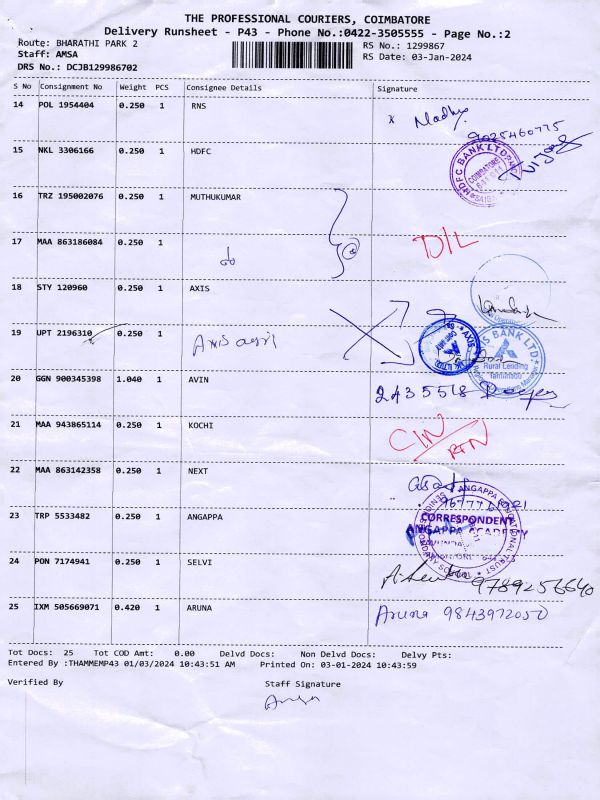 THE PROFESSIONAL COURIERS, COIMBATORE
Delivery Runsheet - P43 - Phone No.:0422-3505555 - Page No.:2
Route: BHARATHI PARK 2 RS No.: 1299867
Staff: AMSA RS Date: 03-Jan-2024
DRS No.: DCJB129986702
S No Consignment No Weight PCS Consignee Details Signature
14 POL 1954404 0.250 1 RNS
x Madhu
9025460775
15 NKL 3306166 0.250 1 HDFC
HDFC BANK LTD
COIMBATORE
16 TRZ 195002076 0.250 1 MUTHUKUMAR
17 MAA 863186084 0.250 1 D/L
do
18 STY 120960 0.250 1 AXIS
19 UPT 2196310 0.250 1 Axis agri
AXIS BANK LTD
Rural Lending
Tamilnadu
20 GGN 900345398 1.040 1 AVIN
2435518
21 MAA 943865114 0.250 1 KOCHI
CIN
RTN
22 MAA 863142358 0.250 1 NEXT
23 TRP 5533482 0.250 1 ANGAPPA
ANGAPPA EDUCATIONAL TRUST
CORRESPONDENT
ANGAPPA ACADEMY
24 PON 7174941 0.250 1 SELVI
9789256640
25 IXM 505669071 0.420 1 ARUNA Aruna 9843972050
Tot Docs: 25 Tot COD Amt: 0.00 Delvd Docs: Non Delvd Docs: Delvy Pts:
Entered By :THAMMEMP43 01/03/2024 10:43:51 AM Printed On: 03-01-2024 10:43:59
Verified By Staff Signature
Amsa